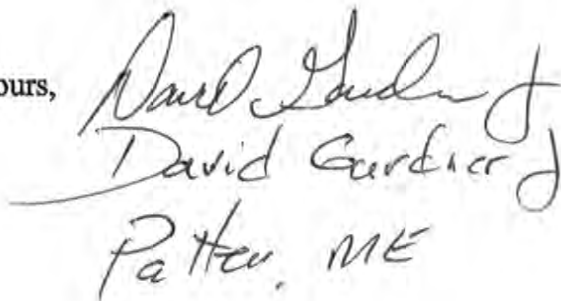 ours, David Gardner J
David Gardner J
Patten, ME